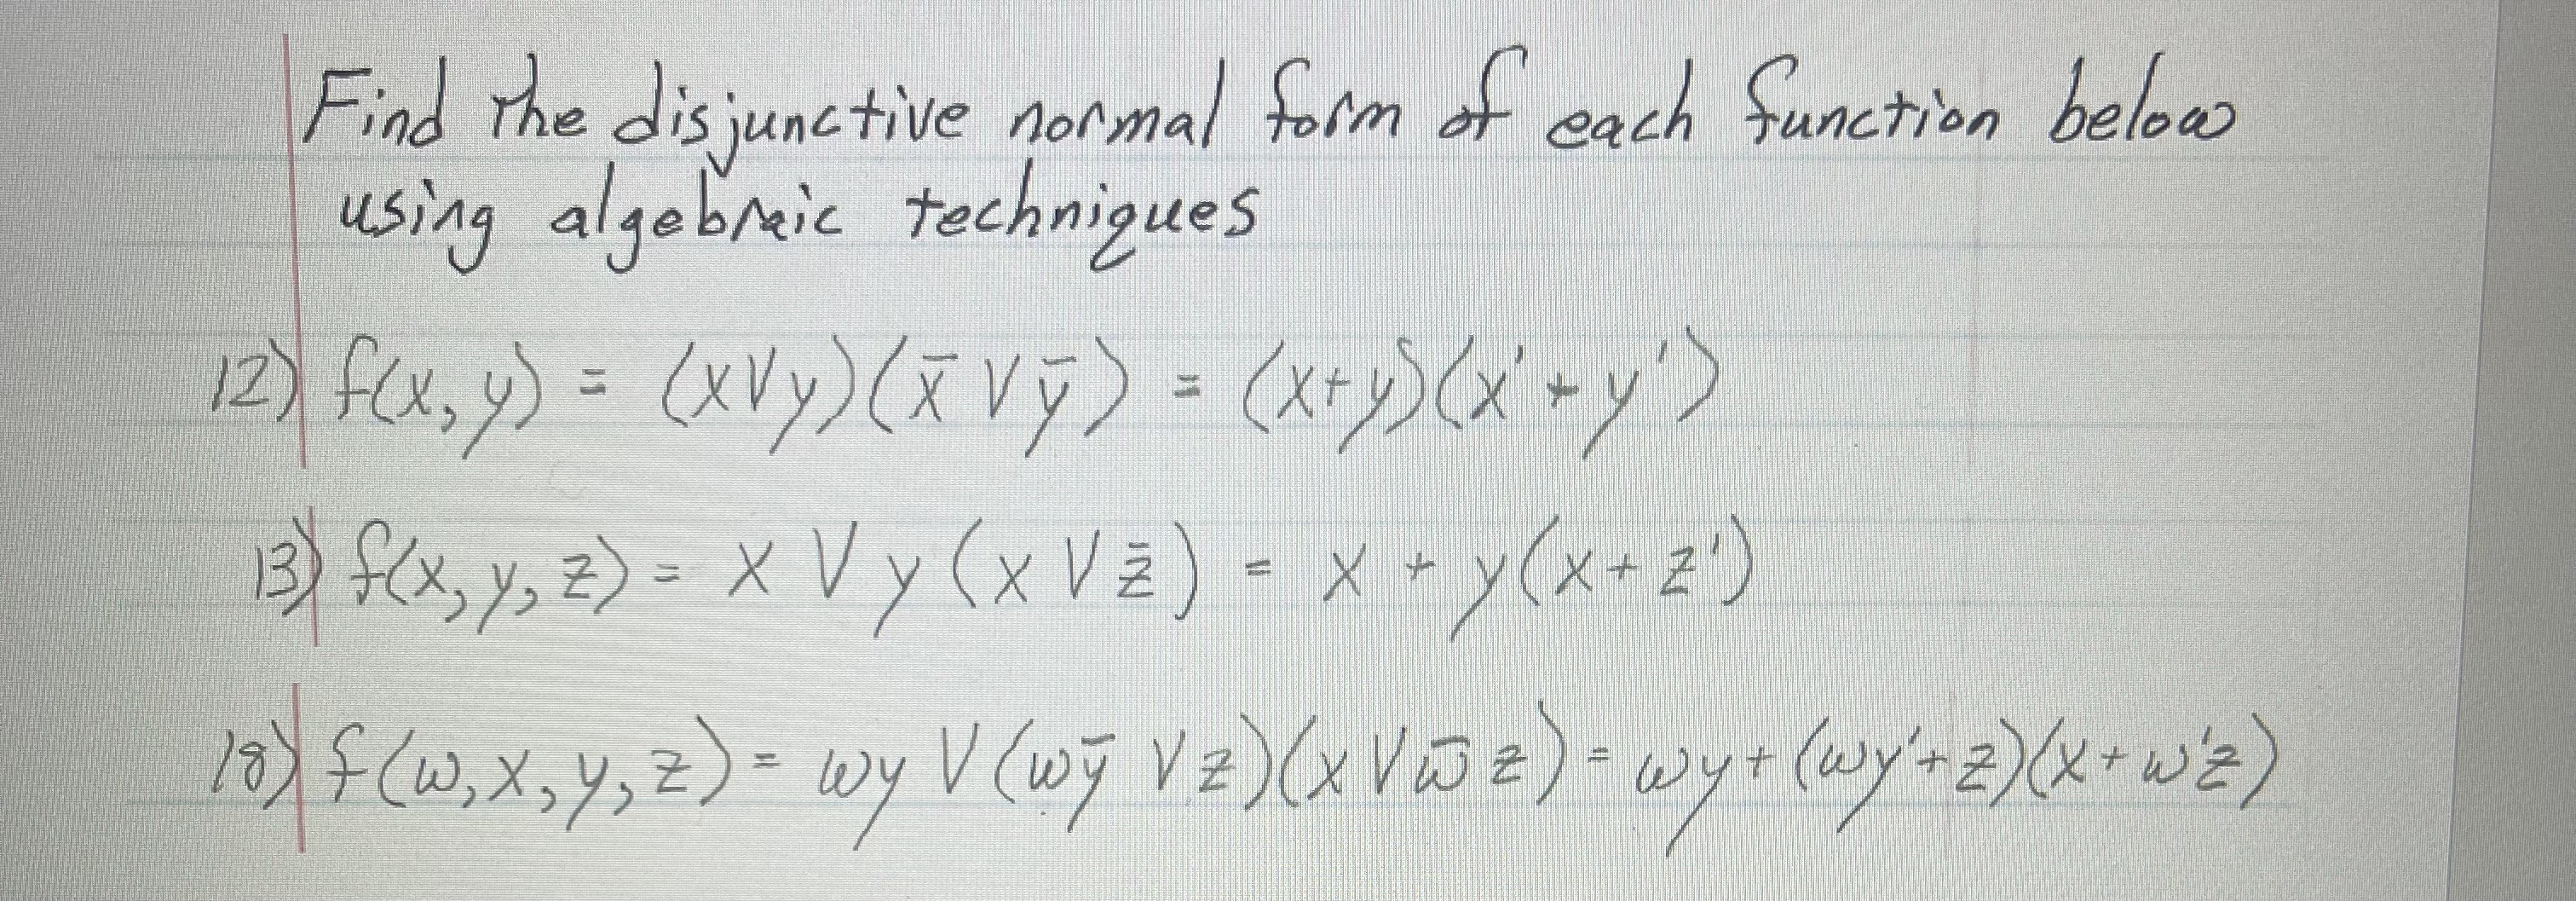 Find the disjunctive normal form of each function below
using algebraic techniques
12) f(x, y) = (x∨y)(x̄ ∨ ȳ) = (x+y)(x' + y')
13) f(x, y, z) = x ∨ y (x ∨ z̄) = x + y(x + z')
18) f(w, x, y, z) = wy ∨ (wȳ ∨ z)(x ∨ w̄ z) = wy + (wy' + z)(x + w'z)